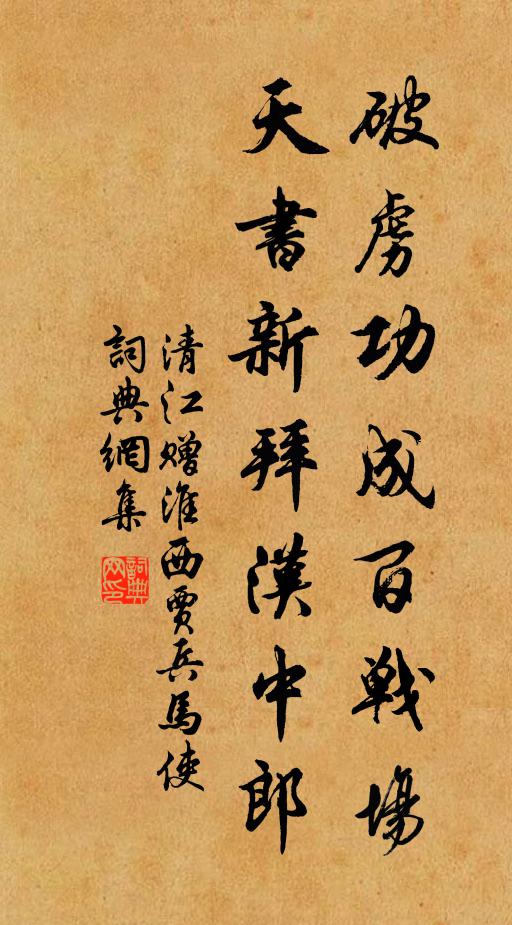 破虏功成百戦場
天書新拜漢中郎
清江贈淮西賈兵馬使
詞典網集
詞典
网印